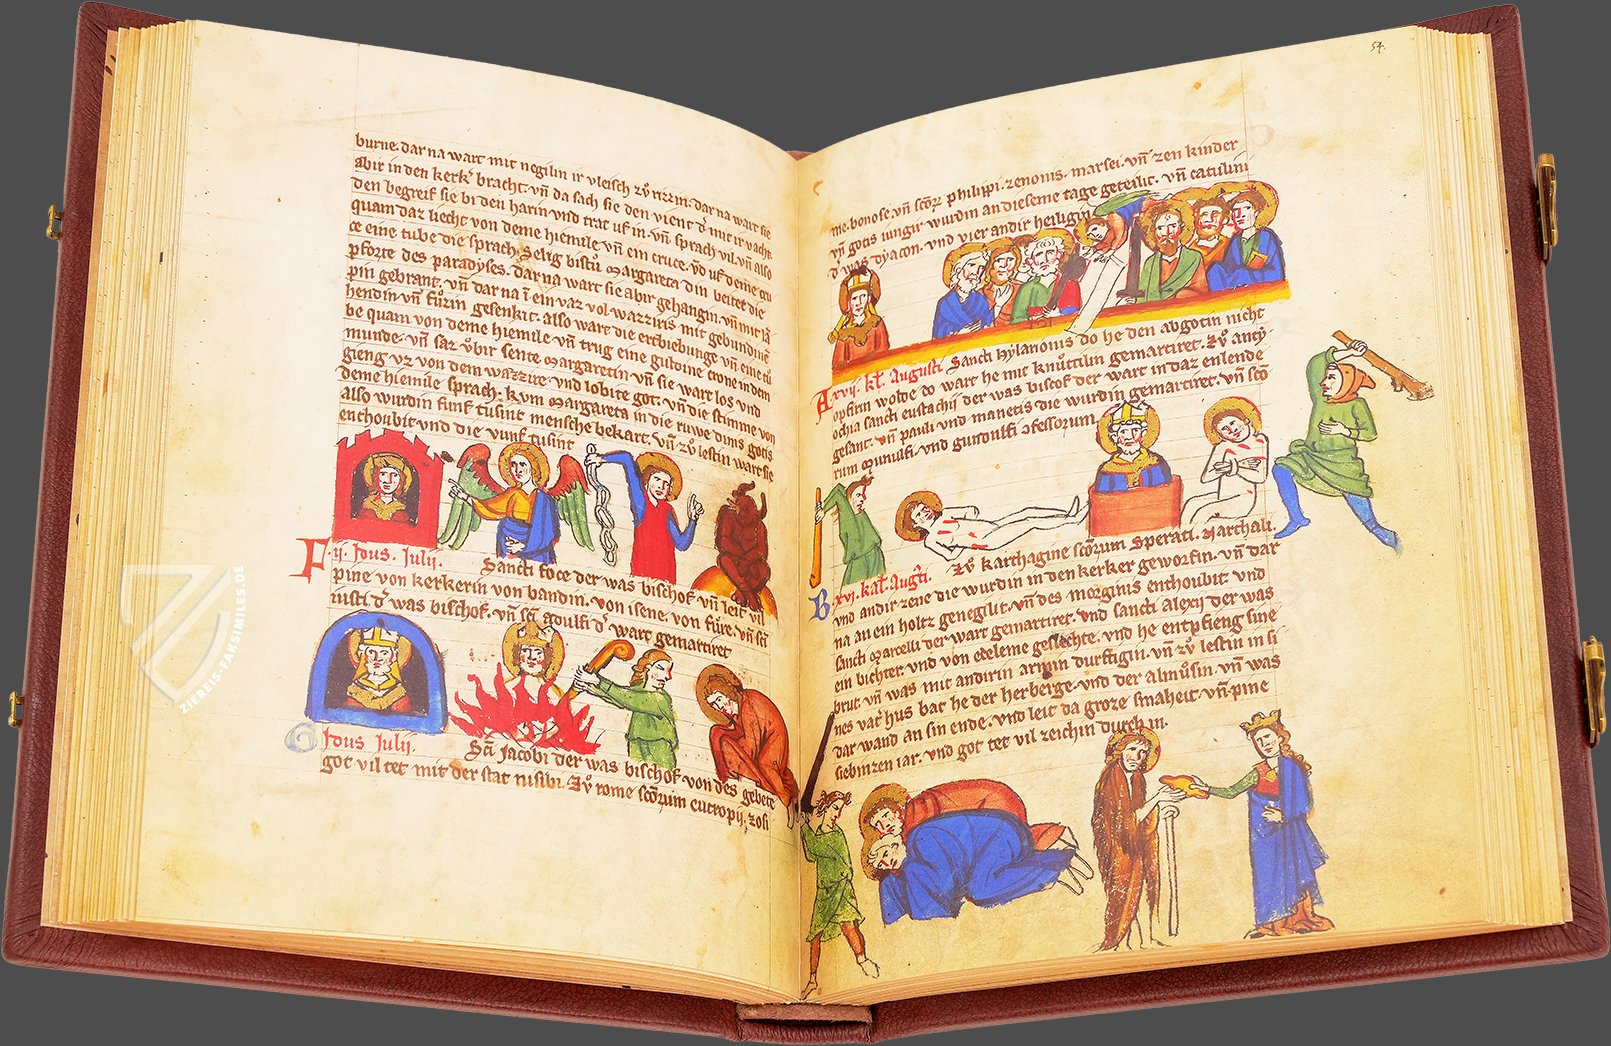 burne. dar na wart mit negilin ir vleisch zů rizzin. dar na wart sie
abir in den kerkˀ bracht. vñ da sach sie den vient dˀ mit ir vacht
den begreif sie bi den harin vnd trat uf in. vñ sprach vil. vñ also
quam daz liecht von deme hiemile vñ ein cruce. vñ uf deme cru
ce eine tube die sprach. Selig bistu Margareta din beitet die
pforte des paradyses. dar na wart sie abir gehangin. vñ mit lā
pin gebrant. vñ dar na ī ein vaz vol wazziris mit gebundinē
hendin vñ fůzin gesenkit. also wart die ertbiebunge vñ eine tu
be quam von deme hiemile vñ trug eine guldine crone in dem
munde. vñ saz ubir sente Margaretin vñ sie wart los vnd
gieng vz von dem wazzire. vnd lobite got. vñ die stimme von
deme hiemile sprach. kvm Margareta in die ruwe dinis gotis
also wurdin funf tusint mensche bekart. vñ zů lestin wart sie
enthoubit vnd die vunf tusint
F ij. Idus. Julij. Sancti foce der was bischof vñ leit vil
pine von kerkerin von bandin. von isene. von fůre. vñ scī
iusti dˀ was bischof. vñ scī adulfi dˀ wart gemartiret
G Idus Julij. Scī Jacobi der was bischof von des gebete
got vil tet mit der stat nisibi. Zů rome scōrum eutropij. zosi
54.
me. bonose. vñ scōrꝝ philipi. zenonis. marsei. vñ zen kinder
vñ gotis iungir wurdin an dieseme tage geteilit. vñ catulini
dˀ was dyacon. vnd vier andir heiligin
A xvij. kł. Augusti. Sancti hylarionis do he den abgotin nicht
opfirn wolde do wart he mit knůttilin gemartiret. Zů anty
ochia sancti eustachij der was biscof der wart in daz enlende
gesant. vñ pauli vnd manetis die wurdin gemartiret. vñ scō
rum Munulfi. vnd gundulfi ꝯfessorum
B xvj. kał. Augti. Zů karthagine scōrum Sperati. Narthali.
vnd andir zene die wurdin in den kerker geworfin. vñ dar
na an ein holtz genegilit. vñ des morginis enthoubit. vnd
sancti Marcelli der wart gemartiret. vnd sancti Alexij der was
ein bichter. vnd von edeleme geslechte. vnd he entpfieng sine
brut. vñ was mit andirin armin durftigin. vñ zů lestin in si
nes vatˀ hus bat he der herberge. vnd der almůsin. vñ was
dar wand an sin ende. vnd leit da groze smaheit. vñ pine
siebinzen iar. vnd got tet vil zeichin durch in.
ZIEREIS-FAKSIMILES.DE